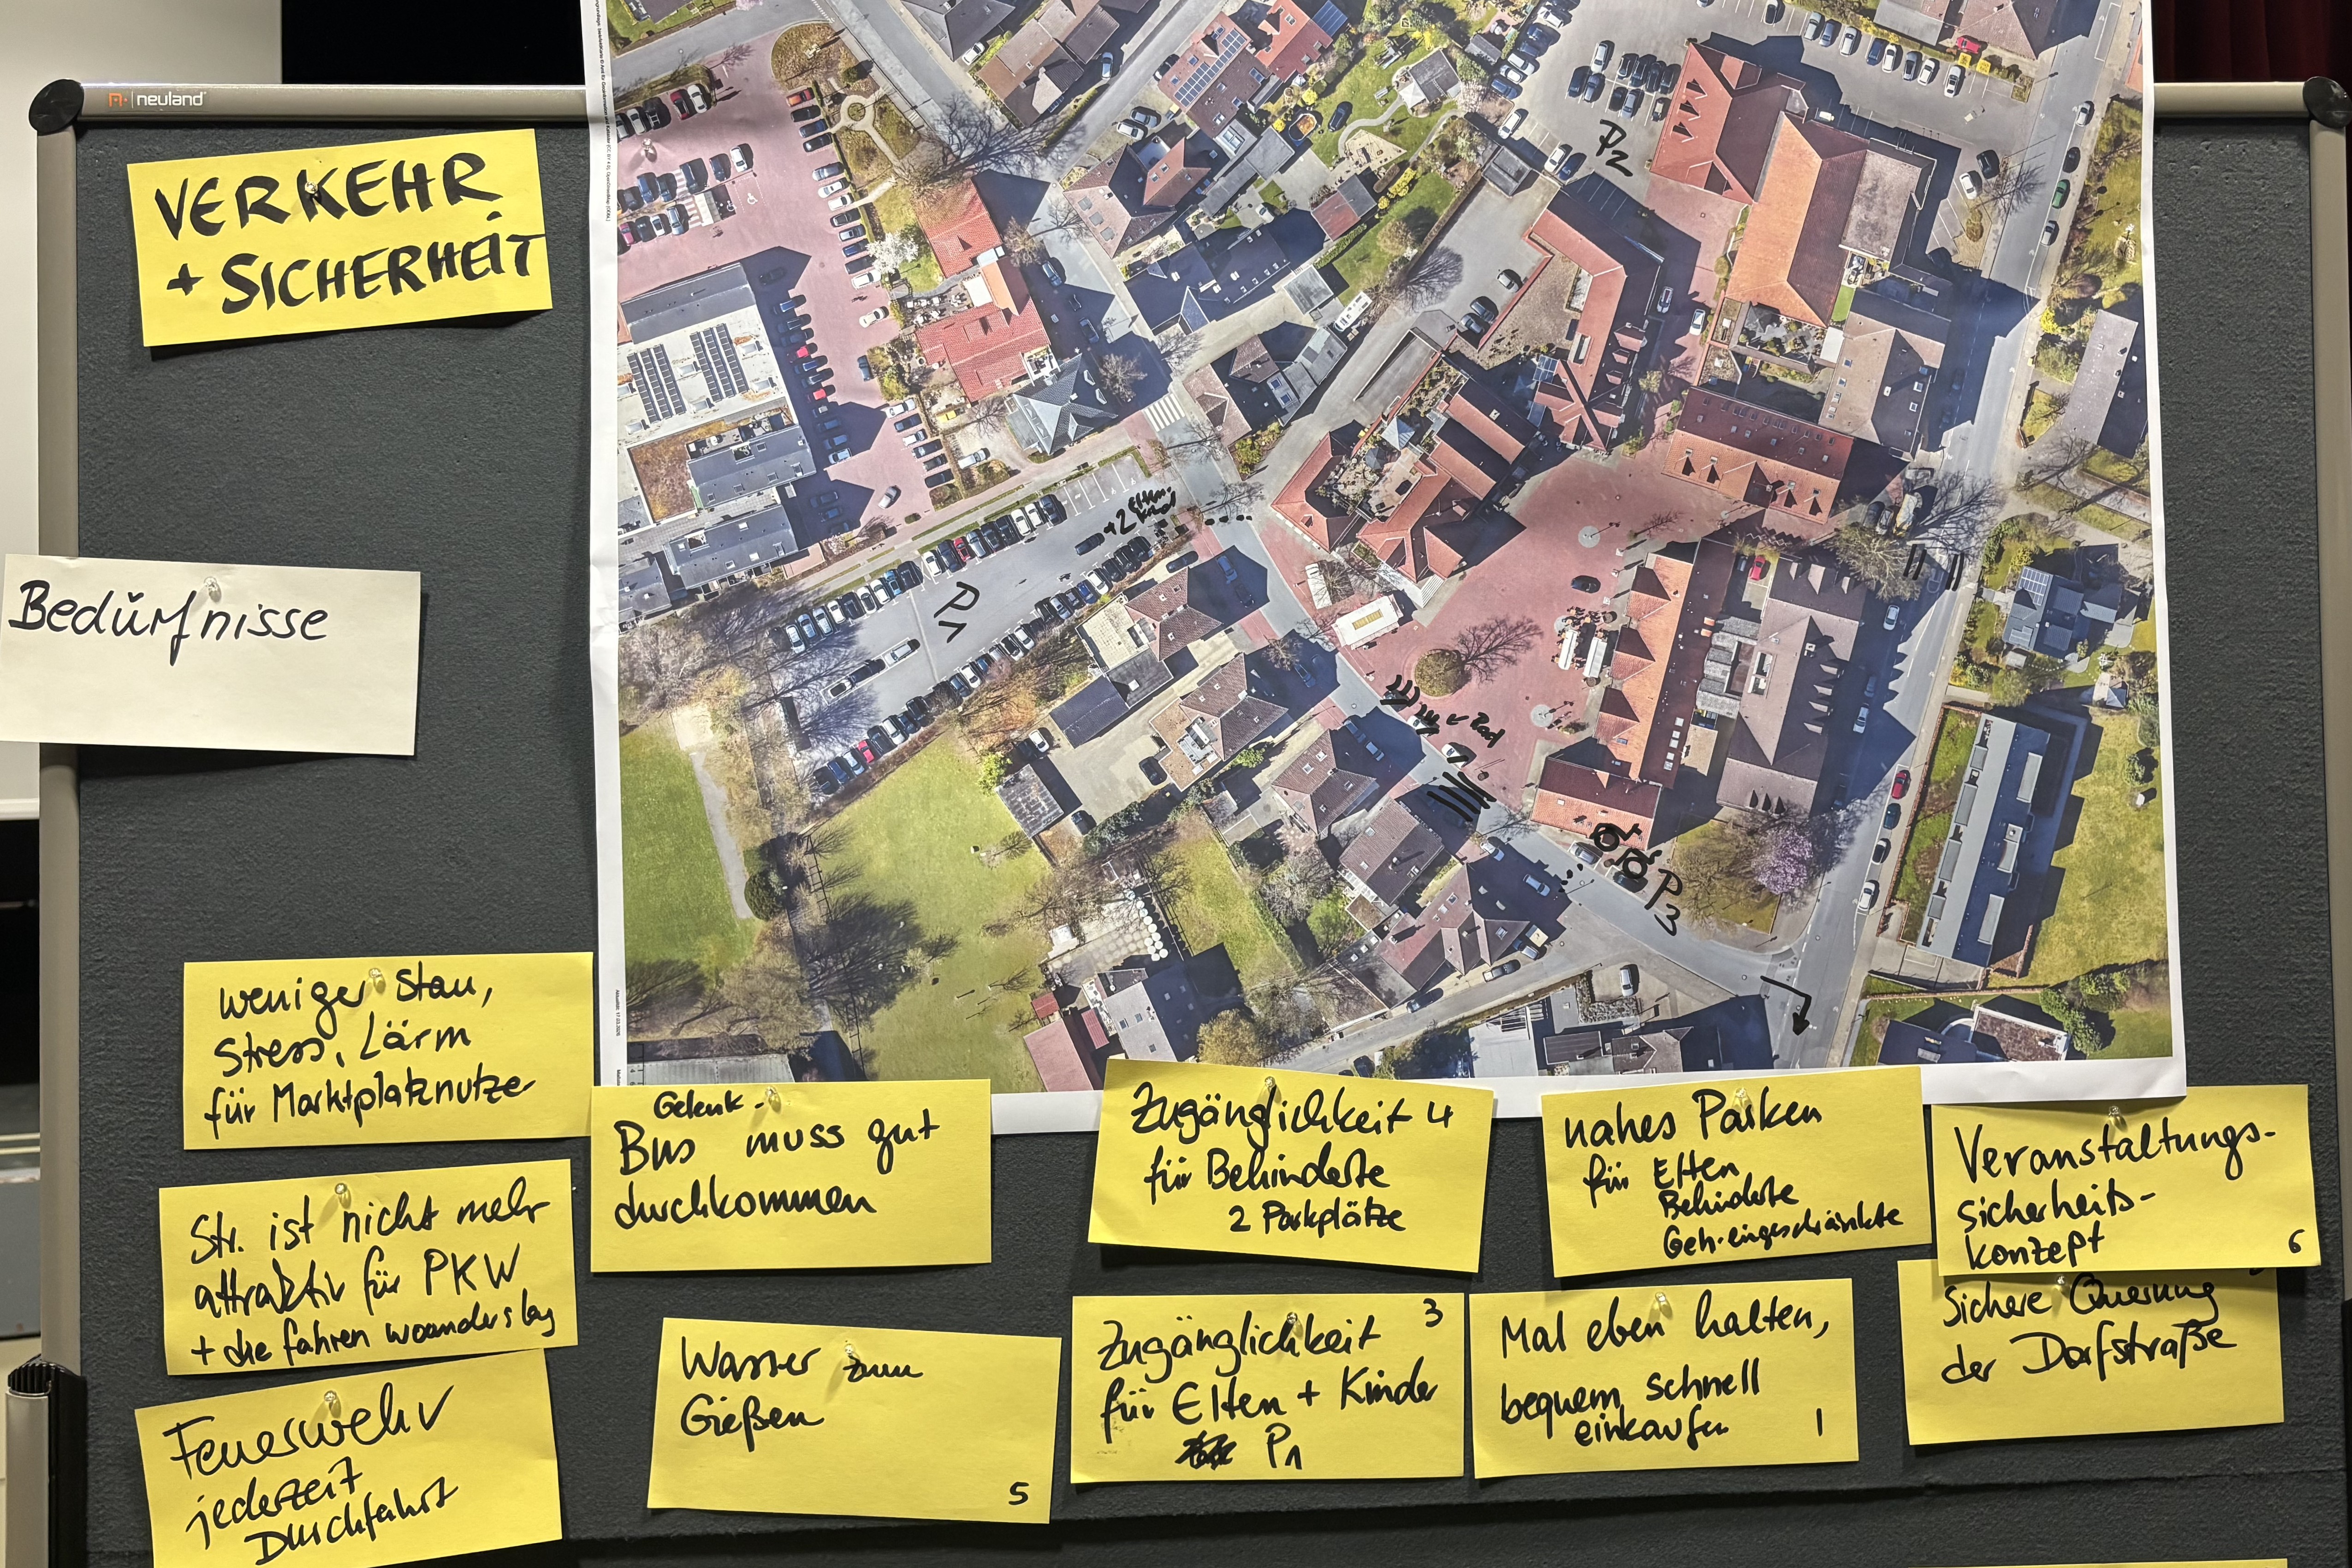 neuland
VERKEHR
+ SICHERHEIT
Bedürfnisse
P2
+2 Eltern-
Kind
P1
Rad
P3
weniger Stau,
Stress, Lärm
für Marktplatznutzer
Str. ist nicht mehr
attraktiv für PKW
+ die fahren woanders lang
Feuerwehr
jederzeit
Durchfahrt
Gelenk-
Bus muss gut
durchkommen
Wasser zum
Gießen
5
Zugänglichkeit 4
für Behinderte
2 Parkplätze
Zugänglichkeit 3
für Eltern + Kinder
P1
nahes Parken
für Eltern
Behinderte
Geh-eingeschränkte
Mal eben halten,
bequem schnell
einkaufen 1
Veranstaltungs-
sicherheits-
konzept
6
Sichere Querung
der Dorfstraße